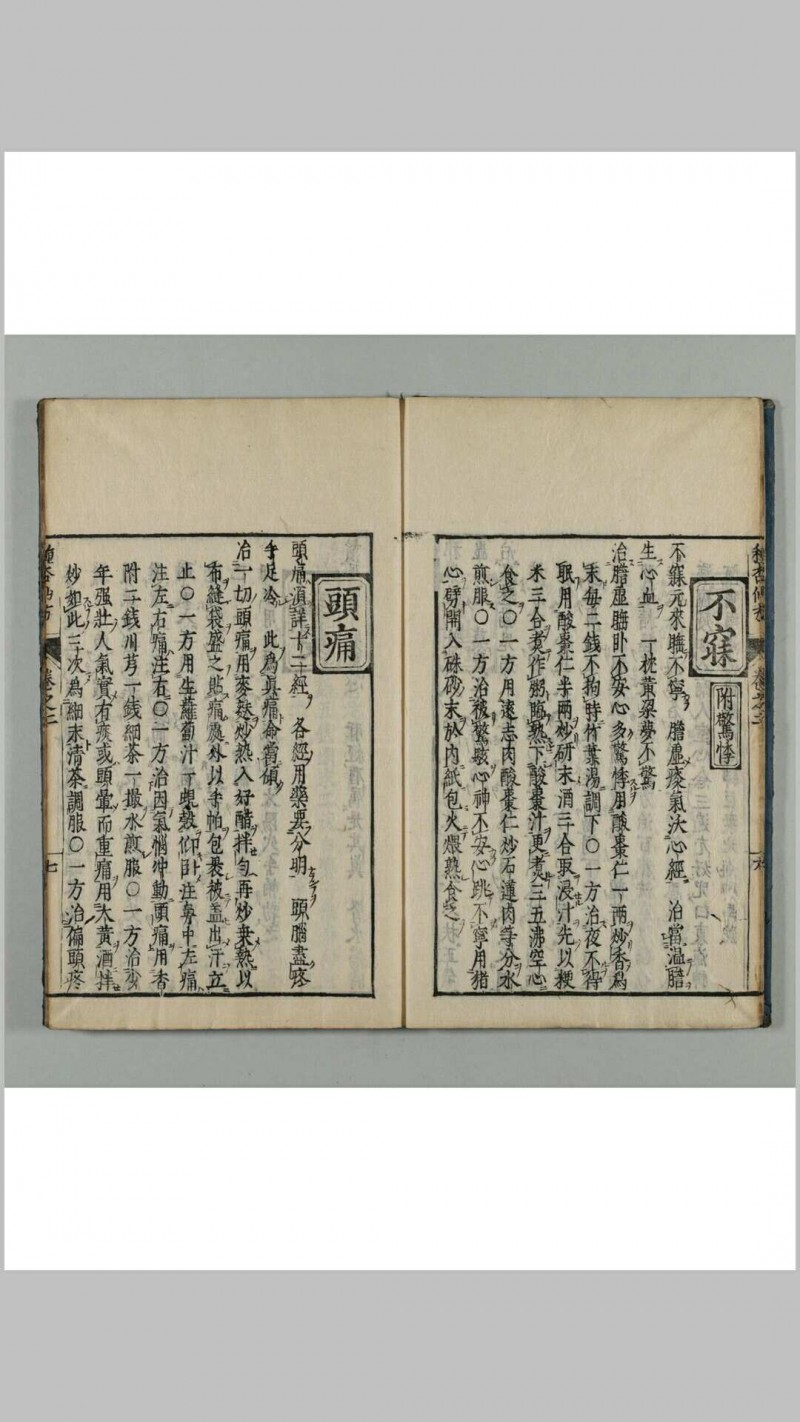 不寐
附驚悸
不寐元來臥不寧 膽虛痰氣汏心經 治當温膽
生心血 一枕黃粱夢不驚
治膽虛臥不安心多驚悸用酸棗仁一兩炒香爲
末每二錢不拘時竹葉湯調下〇一方治夜不得
眠用酸棗仁半兩炒研末酒三合取浸汁先以粳
米三合煮作粥臨熟下酸棗汁更煮三五沸空心
食之〇一方用遠志肉酸棗仁炒石蓮肉等分水
煎服〇一方治被驚駭心神不安心跳不寧用猪
心劈開入硃砂末於內紙包火煨熟食之
卷之二
六
頭痛
頭痛湏詳十二經 各經用藥要分明 頭腦盡疼
手足冷 此爲真痛命當傾
治一切頭痛用麥麩炒熱入好醋拌匀再炒乘熱以
布縫袋盛之貼痛處外以手帕包裹被盖出汗立
止〇一方用生蘿蔔汁一蜆殼仰臥注鼻中左痛
注左右痛注右〇一方治因氣惱冲動頭痛用香
附二錢川芎一錢細茶一撮水煎服〇一方治少
年强壯人氣實有痰或頭暈而重痛用大黃酒拌
炒如此三次爲細末清茶調服〇一方治偏頭疼
種杏仙方
卷之二
七